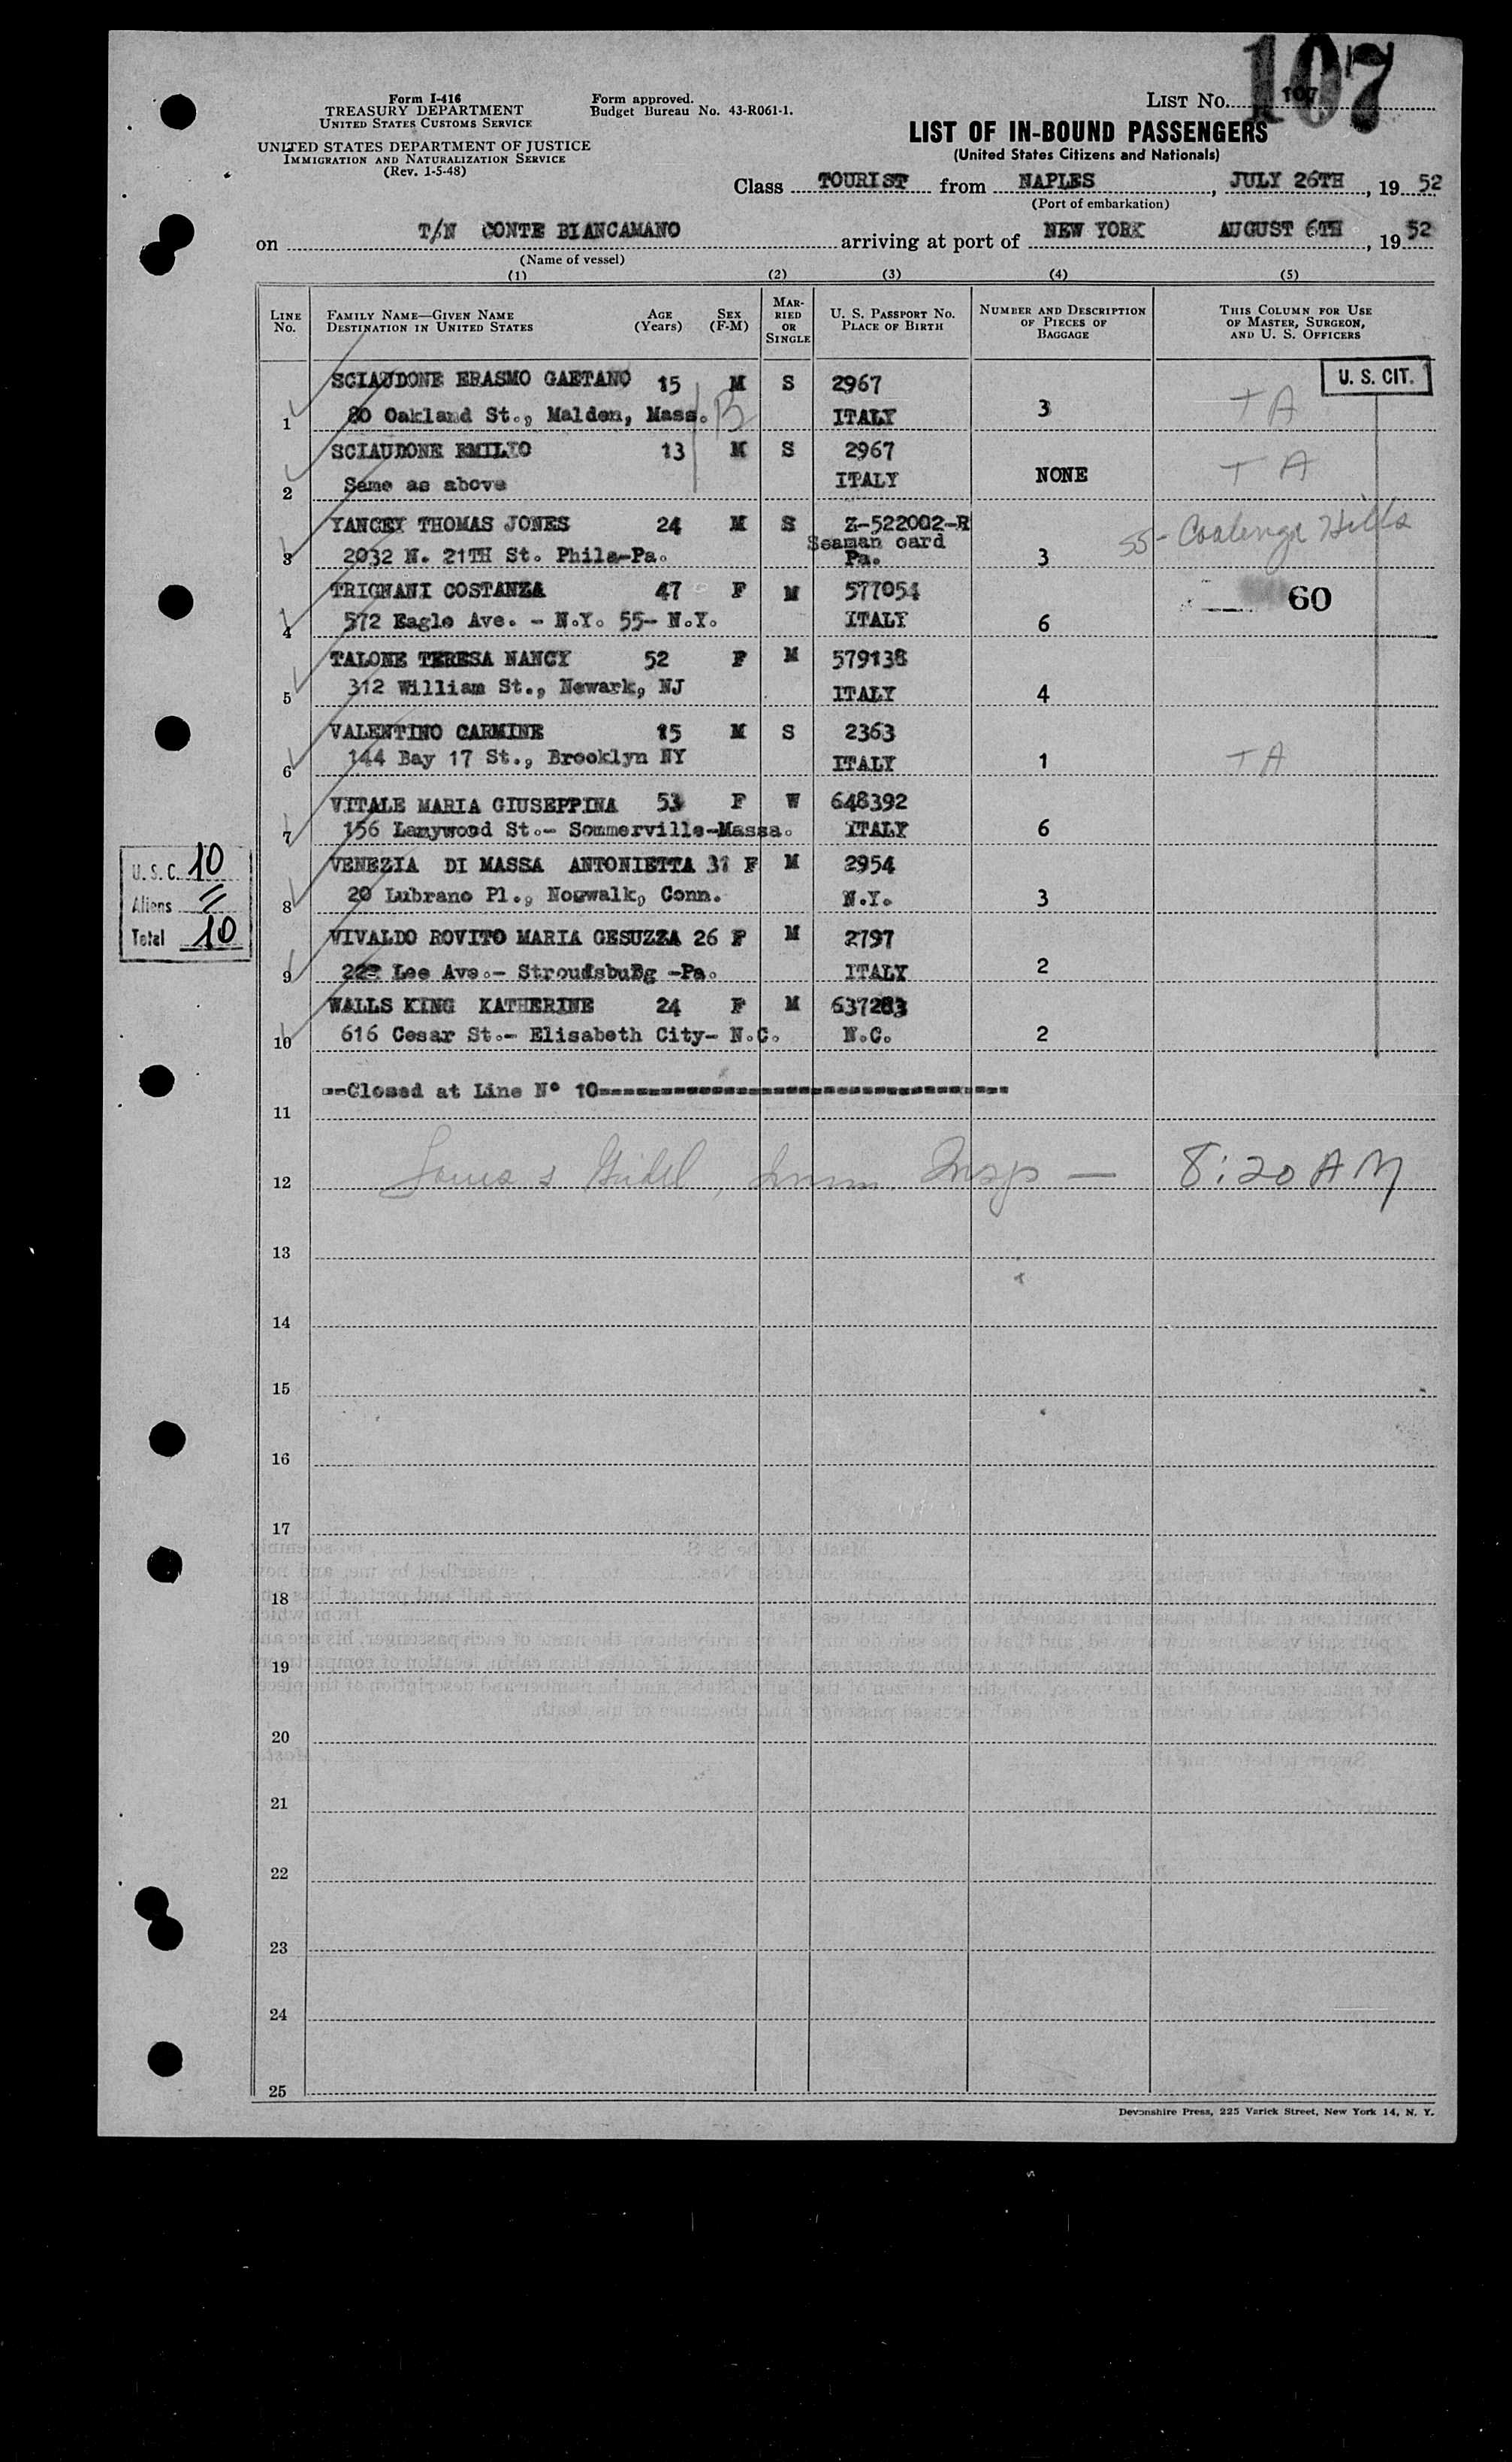 107
Form I-416
TREASURY DEPARTMENT
UNITED STATES CUSTOMS SERVICE
UNITED STATES DEPARTMENT OF JUSTICE
IMMIGRATION AND NATURALIZATION SERVICE
(Rev. 1-5-48)
Form approved.
Budget Bureau No. 43-R061-1.
LIST NO. 107
LIST OF IN-BOUND PASSENGERS
(United States Citizens and Nationals)
Class TOURIST from NAPLES, JULY 26TH, 19 52
(Port of embarkation)
on T/N CONTE BIANCAMANO arriving at port of NEW YORK AUGUST 6TH, 19 52
(Name of vessel)
(1) (2) (3) (4) (5)
LINE No. FAMILY NAME—GIVEN NAME DESTINATION IN UNITED STATES AGE (Years) SEX (F-M) MARRIED OR SINGLE U. S. PASSPORT No. PLACE OF BIRTH NUMBER AND DESCRIPTION OF PIECES OF BAGGAGE THIS COLUMN FOR USE OF MASTER, SURGEON, AND U. S. OFFICERS
U. S. CIT.
SCIAUDONE ERASMO GAETANO 15 M S 2967
1 80 Oakland St., Malden, Mass. B ITALY 3 T A
SCIAUDONE EMILIO 13 M S 2967
2 Same as above ITALY NONE T A
YANCEY THOMAS JONES 24 M S Z-522002-R
Seaman card
3 2032 N. 21TH St. Phila-Pa. Pa. 3 SS- Coalinga Hills
TRIGNANI COSTANZA 47 F M 577054 60
4 572 Eagle Ave. - N.Y. 55- N.Y. ITALY 6
TALONE TERESA NANCY 52 F M 579138
5 312 William St., Newark, NJ ITALY 4
VALENTINO CARMINE 15 M S 2363
6 144 Bay 17 St., Brooklyn NY ITALY 1 T A
VITALE MARIA GIUSEPPINA 53 F W 648392
7 156 Lamywood St.- Sommerville-Massa. ITALY 6
VENEZIA DI MASSA ANTONIETTA F M 2954
8 20 Lubrano Pl., Nogwalk, Conn. N.Y. 3
VIVALDO ROVITO MARIA GESUZZA 26 F M 2797
9 Lee Ave.- Stroudsburg -Pa. ITALY 2
WALLS KING KATHERINE 24 F M 637283
10 616 Cesar St.- Elisabeth City- N.C. N.C. 2
U. S. C. 10
Aliens =
Total 10
11 --Closed at Line N° 10--------------------------------
12 Imm. Insp — 8:20 AM
13
14
15
16
17
18
19
20
21
22
23
24
25
Devonshire Press, 225 Varick Street, New York 14, N. Y.